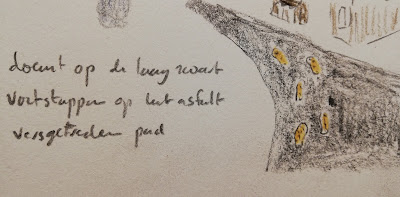 doemt op de laag zwart
voetstappen op het asfalt
versgetreden pad